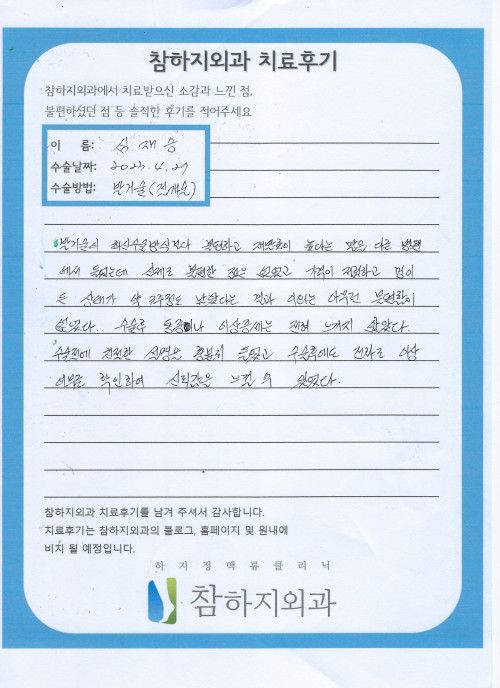 참하지외과 치료후기
참하지외과에서 치료받으신 소감과 느낀 점,
불편하셨던 점 등 솔직한 후기를 적어주세요
이 름: 심재승
수술날짜: 2023. 4. 29
수술방법: 발거술(전개술)
발거술이 최신수술방식보다 불편하고 재발률이 높다는 말을 다른 병원
에서 들었는데 실제로 불편한 점은 없었고 가격이 저렴하고 멍이
든 상태가 약 2주정도 났다는 것과 이외는 아무런 불편함이
없었다. 수술후 통증이나 이상증세는 전혀 느끼지 않았다.
수술전에 걱정할 설명은 충분히 들었고 수술후에도 전화로 이상
여부를 확인하여 신뢰감을 느낄 수 있었다.
참하지외과 치료후기를 남겨 주셔서 감사합니다.
치료후기는 참하지외과의 블로그, 홈페이지 및 원내에
비치 될 예정입니다.
하지정맥류클리닉
참하지외과